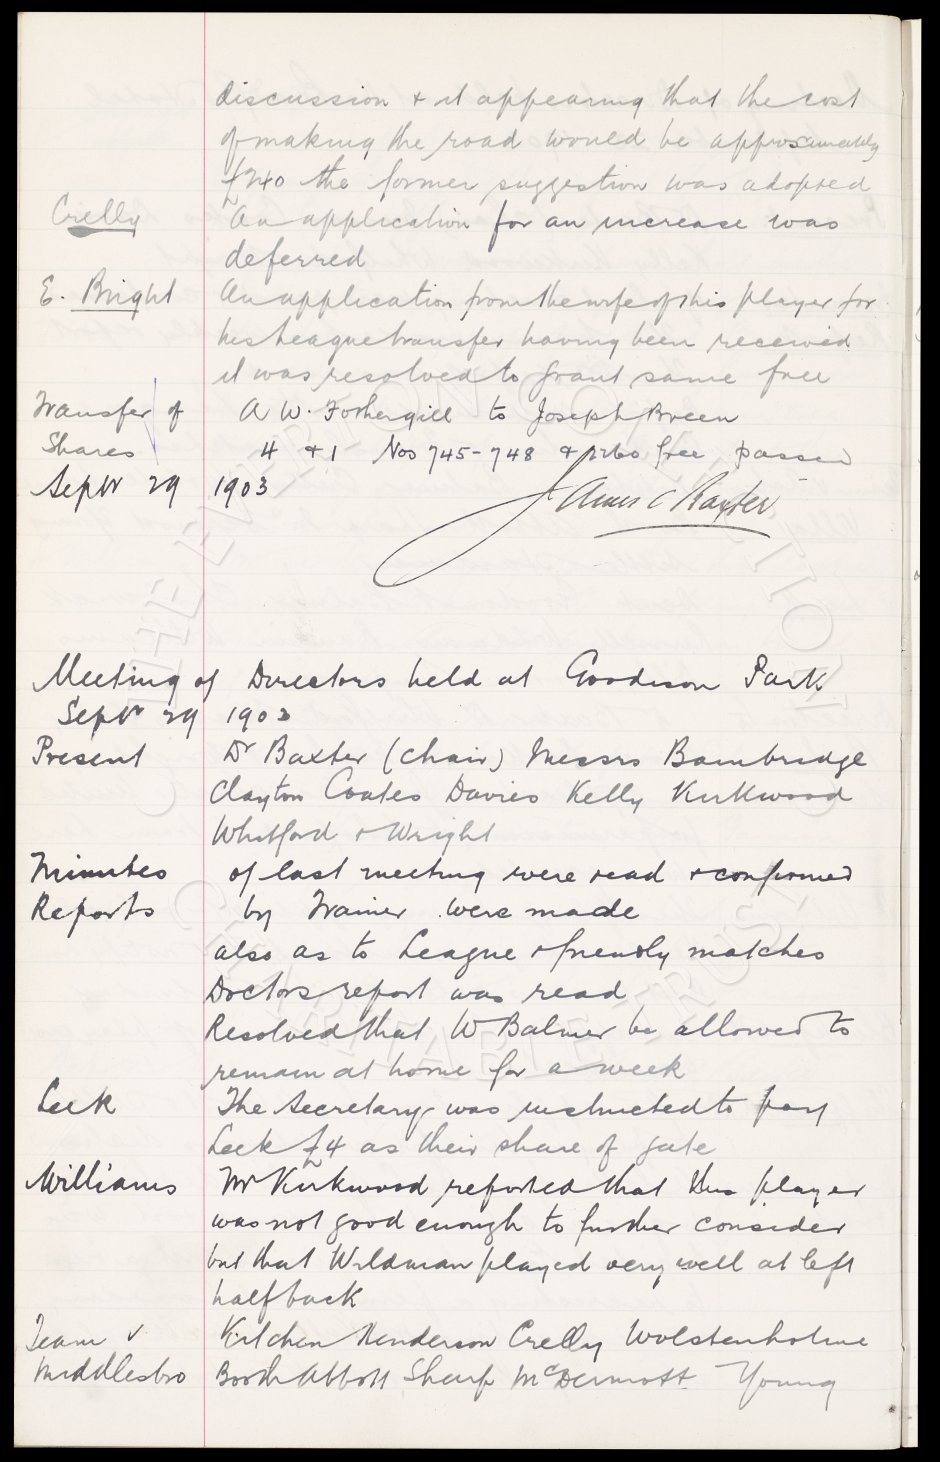 discussion + it appearing that the cost
of making the road would be approximately
£240 the former suggestion was adopted
Crelly An application for an increase was
deferred
E. Bright An application from the wife of this player for
his League transfer having been received
it was resolved to grant same free
Transfer of A W. Fothergill to Joseph Breen
Shares 4 + 1 Nos 745-748 & free passed
Septr 29 1903 James C Baxter
Meeting of Directors held at Goodison Park
Septr 29 1903
Present Dr Baxter (chair) Messrs Bainbridge
Clayton Coates Davies Kelly Kirkwood
Whitford & Wright
Minutes of last meeting were read & confirmed
Reports by Trainer were made
also as to League & friendly matches
Doctors report was read
Resolved that W Balmer be allowed to
remain at home for a week
Leek The Secretary was instructed to pay
Leek £4 as their share of gate
Williams Mr Kirkwood reported that this player
was not good enough to further consider
but that Wildman played very well at left
half back
Team v Kitchen Henderson Crelly Wolstenholme
Middlesbro Booth Abbott Sharp McDermott Young
THE EVERTON COLLECTION
CHARITABLE TRUST